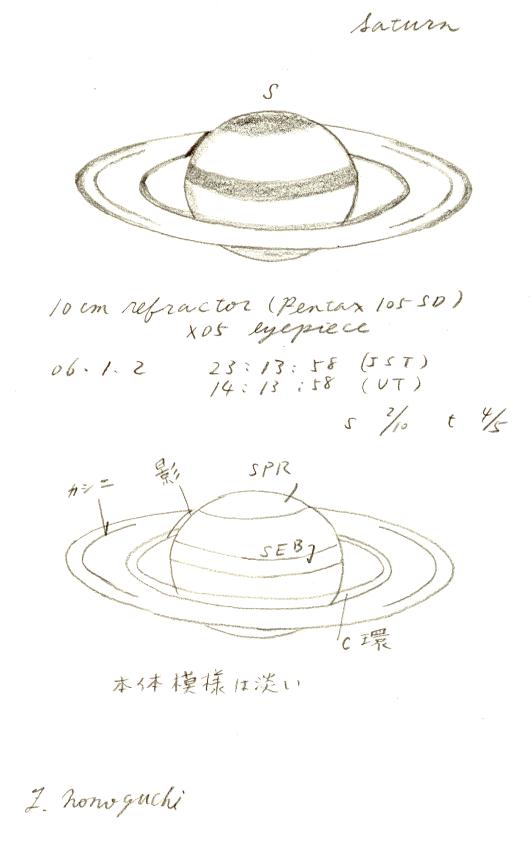 Saturn
S
10 cm refractor (Pentax 105 SD)
XO5 eyepiece
06. 1. 2 23:13:58 (JST)
14:13:58 (UT)
s 2/10 t 4/5
影 SPR
カシニ
SEB
C 環
本体模様は淡い
nonoguchi